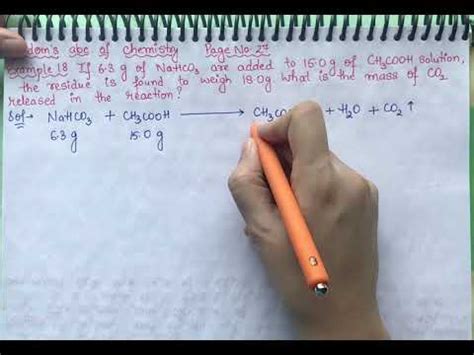 abc of Chemistry Page No. 27
Example 18 If 6.3 g of NaHCO3 are added to 15.0 g of CH3COOH solution,
the residue is found to weigh 18.0 g. what is the mass of CO2
released in the reaction?
Sol→ NaHCO3 + CH3COOH → CH3CO + H2O + CO2 ↑
6.3 g 15.0 g